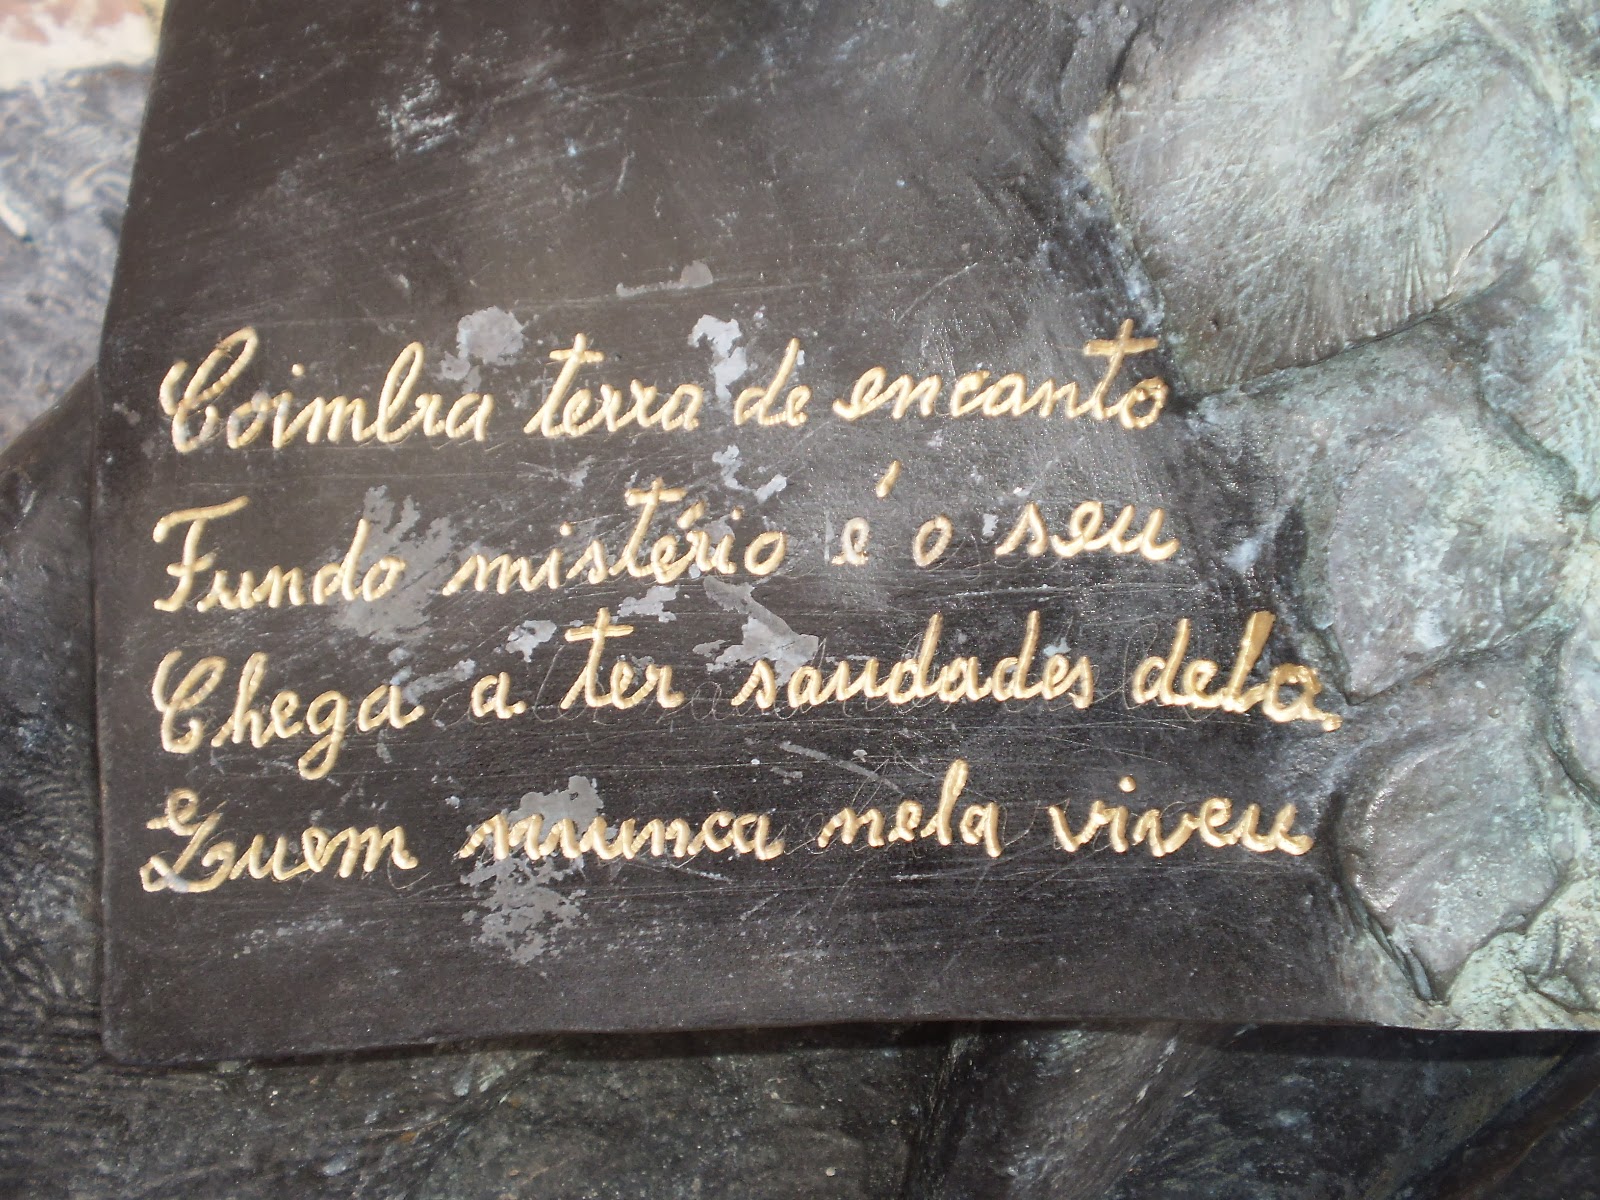 Coimbra terra de encanto
Fundo mistério é o seu
Chega a ter saudades dela,
Quem nunca nela viveu